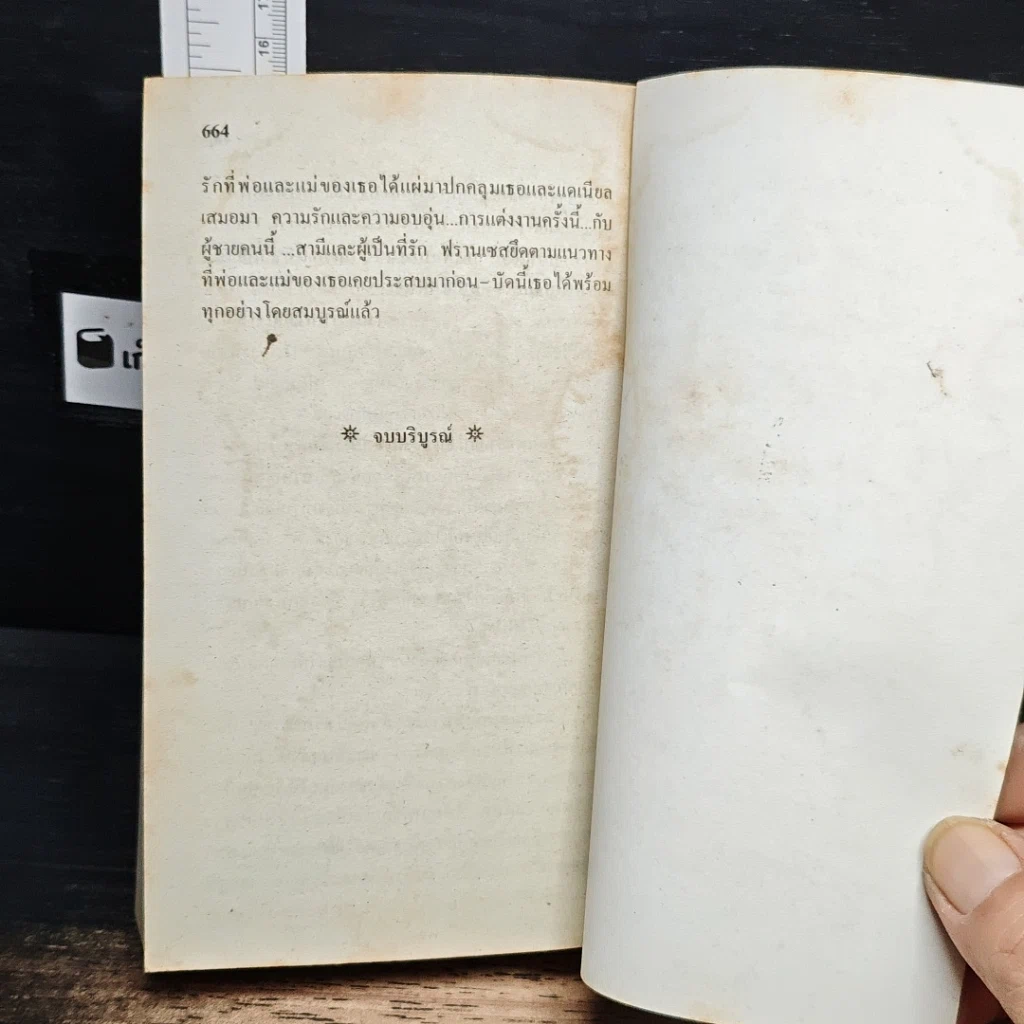 664
รักที่พ่อและแม่ของเธอได้แผ่มาปกคลุมเธอและแดเนียล
เสมอมา ความรักและความอบอุ่น...การแต่งงานครั้งนี้...กับ
ผู้ชายคนนี้ ...สามีและผู้เป็นที่รัก ฟรานเซสยึดตามแนวทาง
ที่พ่อและแม่ของเธอเคยประสบมาก่อน–บัดนี้เธอได้พร้อม
ทุกอย่างโดยสมบูรณ์แล้ว
จบบริบูรณ์
16